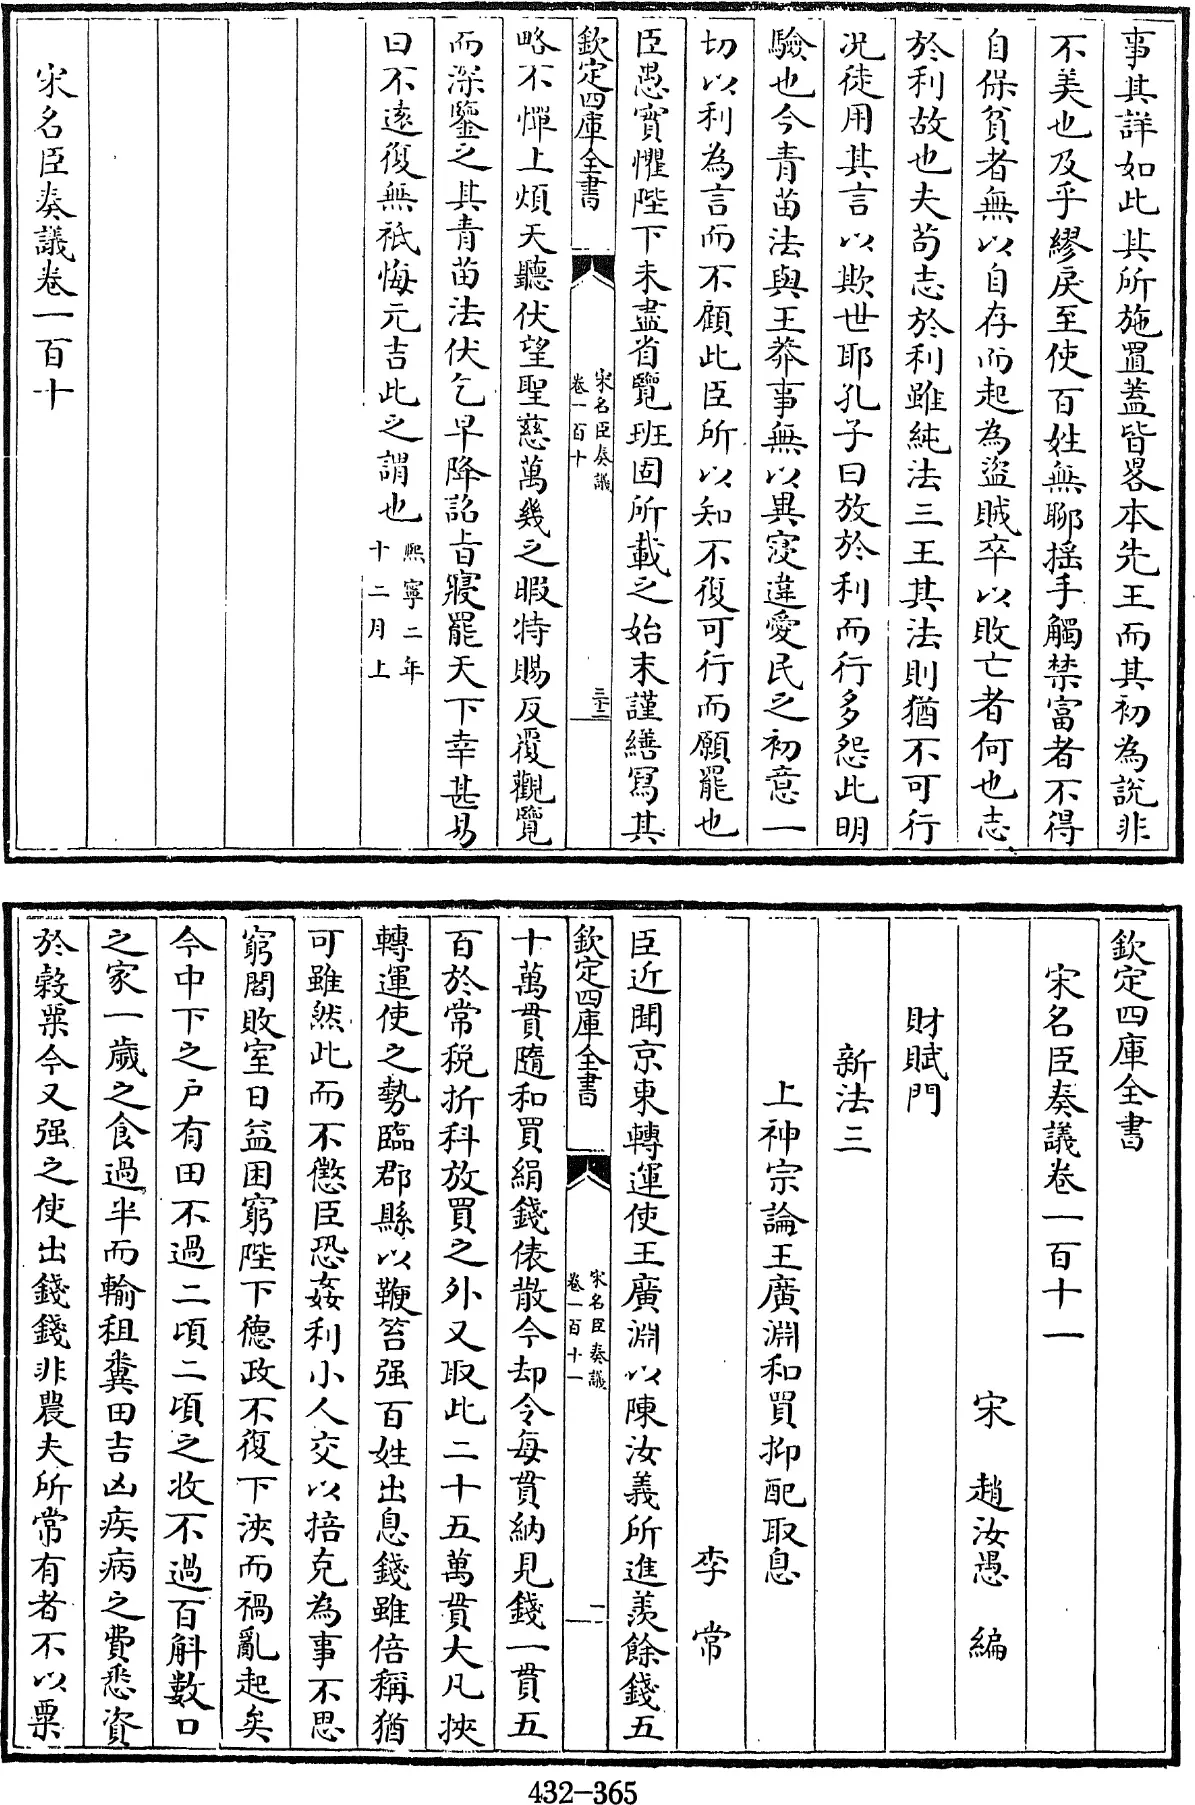 事其詳如此其所施置蓋皆畧本先王而其初為說非
不美也及乎繆戾至使百姓無聊搖手觸禁富者不得
自保貧者無以自存而起為盜賊卒以敗亡者何也志
於利故也夫苟志於利雖純法三王其法則猶不可行
况徒用其言以欺世耶孔子曰放於利而行多怨此明
驗也今青苗法與王莽事無以異寖違愛民之初意一
切以利為言而不顧此臣所以知不復可行而願罷也
臣愚實懼陛下未盡省覽班固所載之始末謹繕寫其
欽定四庫全書
宋名臣奏議
卷一百十
三十二
略不憚上煩天聽伏望聖慈萬幾之暇特賜反覆觀覽
而深鑒之其青苗法伏乞早降詔旨寢罷天下幸甚易
曰不遠復無祇悔元吉此之謂也
熙寧二年
十二月上
宋名臣奏議卷一百十
欽定四庫全書
宋名臣奏議卷一百十一
宋 趙汝愚 編
財賦門
新法三
上神宗論王廣淵和買抑配取息
李常
臣近聞京東轉運使王廣淵以陳汝義所進羨餘錢五
欽定四庫全書
宋名臣奏議
卷一百十一
一
十萬貫隨和買絹錢俵散今却令每貫納見錢一貫五
百於常稅折科放買之外又取此二十五萬貫大凡挾
轉運使之勢臨郡縣以鞭笞强百姓出息錢雖倍稱猶
可雖然此而不懲臣恐姦利小人交以掊克為事不思
窮閻敗室日益困窮陛下德政不復下浹而禍亂起矣
今中下之戶有田不過二頃二頃之收不過百斛數口
之家一歲之食過半而輸租糞田吉凶疾病之費悉資
於穀粟今又强之使出錢錢非農夫所常有者不以粟
432-365